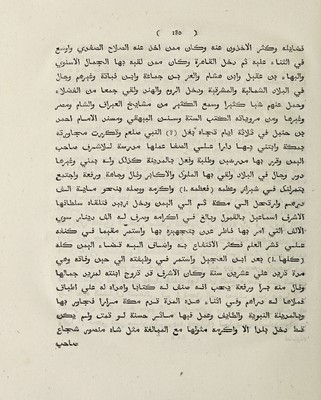 ( ١٨٥ )
فضايله وكثر الاخذون عنه وكان ممن اخذ عنه الصلاح الصفدي واوسع
في الثناء عليه ثم دخل القاهرة وكان ممن لقيه بها الجمال الاسنوي
والبهاء بن عقيل وابن هشام والعز بن جماعة وابن نباتة وغيرهم وجال
في البلاد الشمالية والمشرقية ودخل الروم والهند ولقي جمعا من الفضلاء
وحمل عنهم شيا كثيرا وسمع الكثير من مشايخ العراق والشام ومصر
وغيرها ومن مروياته الكتب الستة وسنن البيهقي ومسند الامام احمد
بن حنبل في ثلاثة ايام تجاه نعل (?) النبي صلعم وتكررت مجاورته
بمكة وابتني بها دارا علي الصفا عملها مدرسة للاشرف صاحب
اليمن وقرر بها مدرسين وطلبة وفعل بالمدينة كذلك وله بمني وغيرها
دور وجال في البلاد ولقي بها الملوك والاكابر ونال وجاهة ورفعة واجتمع
بتمرلنك في شيراز وعظمه (فعظمه .l) واكرمه ووصله بنحو ماية الف
درهم وارتحل الي مكة ثم الي اليمن ودخل زبيد فتلقاه سلطانها
الاشرف اسماعيل بالقبول وبالغ في اكرامه وصرف له الف دينار سوي
الالف التي امر بها ناظر عدن بتجهيزه بها واستمر مقيما في كنفه
علي نشر العلم فكثر الانتفاع به واضاف اليه قضاء اليمن كله
(كلها .l) بعد ابن العجيل واستمر في وظيفته الي حين وفاته وهي
مدة تزيد علي عشرين سنة وكان الاشرف قد تزوج ابنته لمزيد جمالها
ونال منه برا ورفعة بحيث انه صنف له كتابا واهداه له علي اطباق
فملاها له دراهم وفي اثناء هذه المدة قدم مكة مرارا فجاور بها
وبالمدينة النبوية والطايف وعمل فيها مآثر حسنة لو تمت ولم يكن
قط دخل بلدا الا واكرمه متوليها مع المبالغة مثل شاه منصور شجاع
صاحب